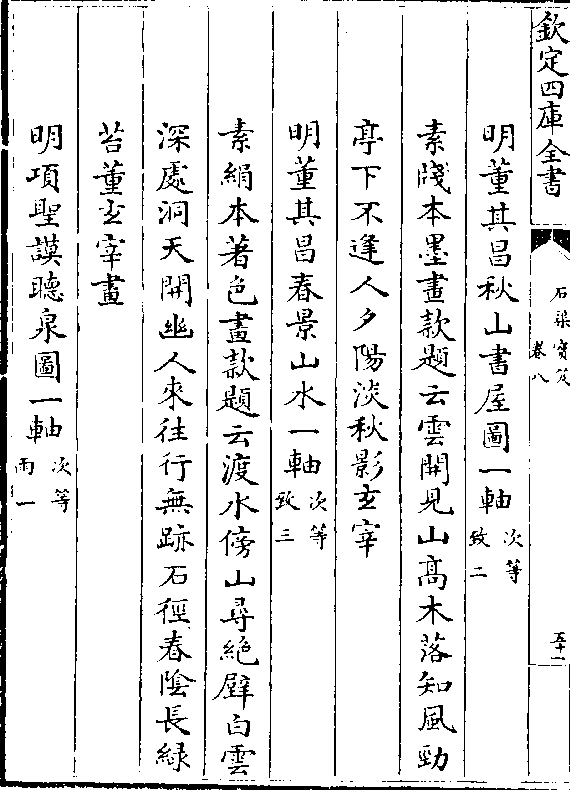 欽定四庫全書
石渠寳笈
卷八
五十一
明董其昌秋山書屋圖一軸次等
致二
素牋本墨畫款題云雲開見山髙木落知風勁
亭下不逢人夕陽淡秋影玄宰
明董其昌春景山水一軸次等
致三
素絹本著色畫款題云渡水傍山尋絶壁白雲
深處洞天開幽人來往行無跡石徑春陰長緑
苔董玄宰畫
明項聖謨聽泉圖一軸次等
雨一